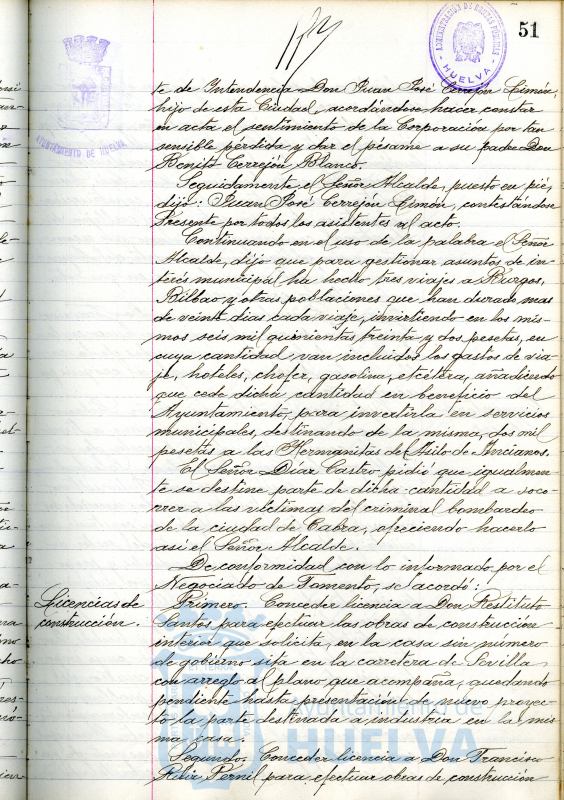 51
ADMINISTRACION DE RENTAS PUBLICAS
HUELVA
AYUNTAMIENTO DE HUELVA
te de Intendencia Don Juan José Cerrejón Limón,
hijo de esta Ciudad, acordándose hacer constar
en acta el sentimiento de la Corporación por tan
sensible pérdida y dar el pésame a su padre Don
Benito Cerrejón Blanco.
Seguidamente el Señor Alcalde, puesto en pié,
dijo: Juan José Cerrejón Limón, contestándose
Presente por todos los asistentes al acto.
Continuando en el uso de la palabra el Señor
Alcalde, dijo que para gestionar asuntos de in-
terés municipal ha hecho tres viajes a Burgos,
Bilbao y otras poblaciones que han durado mas
de veinte dias cada viaje, invirtiendo en los mis-
mos seis mil quinientas treinta y dos pesetas, en
cuya cantidad van incluidos los gastos de via-
je, hoteles, chofer, gasolina, etcétera, añadiendo
que cede dicha cantidad en beneficio del
Ayuntamiento, para invertirla en servicios
municipales, destinando de la misma, dos mil
pesetas a las Hermanitas del Asilo de Ancianos.
El Señor Díaz Castro pidió que igualmen-
te se destine parte de dicha cantidad a soco-
rrer a las víctimas del criminal bombardeo
de la ciudad de Cabra, ofreciendo hacerlo
así el Señor Alcalde.
De conformidad con lo informado por el
Negociado de Fomento, se acordó:
Licencias de
construcción.
Primero. Conceder licencia a Don Restituto
Santos para efectuar las obras de construcción
interior que solicita, en la casa sin número
de gobierno sita en la carretera de Sevilla
con arreglo al plano que acompaña, quedando
pendiente hasta presentación de nuevo proyec-
to la parte destinada a industria en la mis-
ma casa.
Segundo. Conceder licencia a Don Francisco
Ruiz Pernil para efectuar obras de construcción
Ayuntamiento de
HUELVA